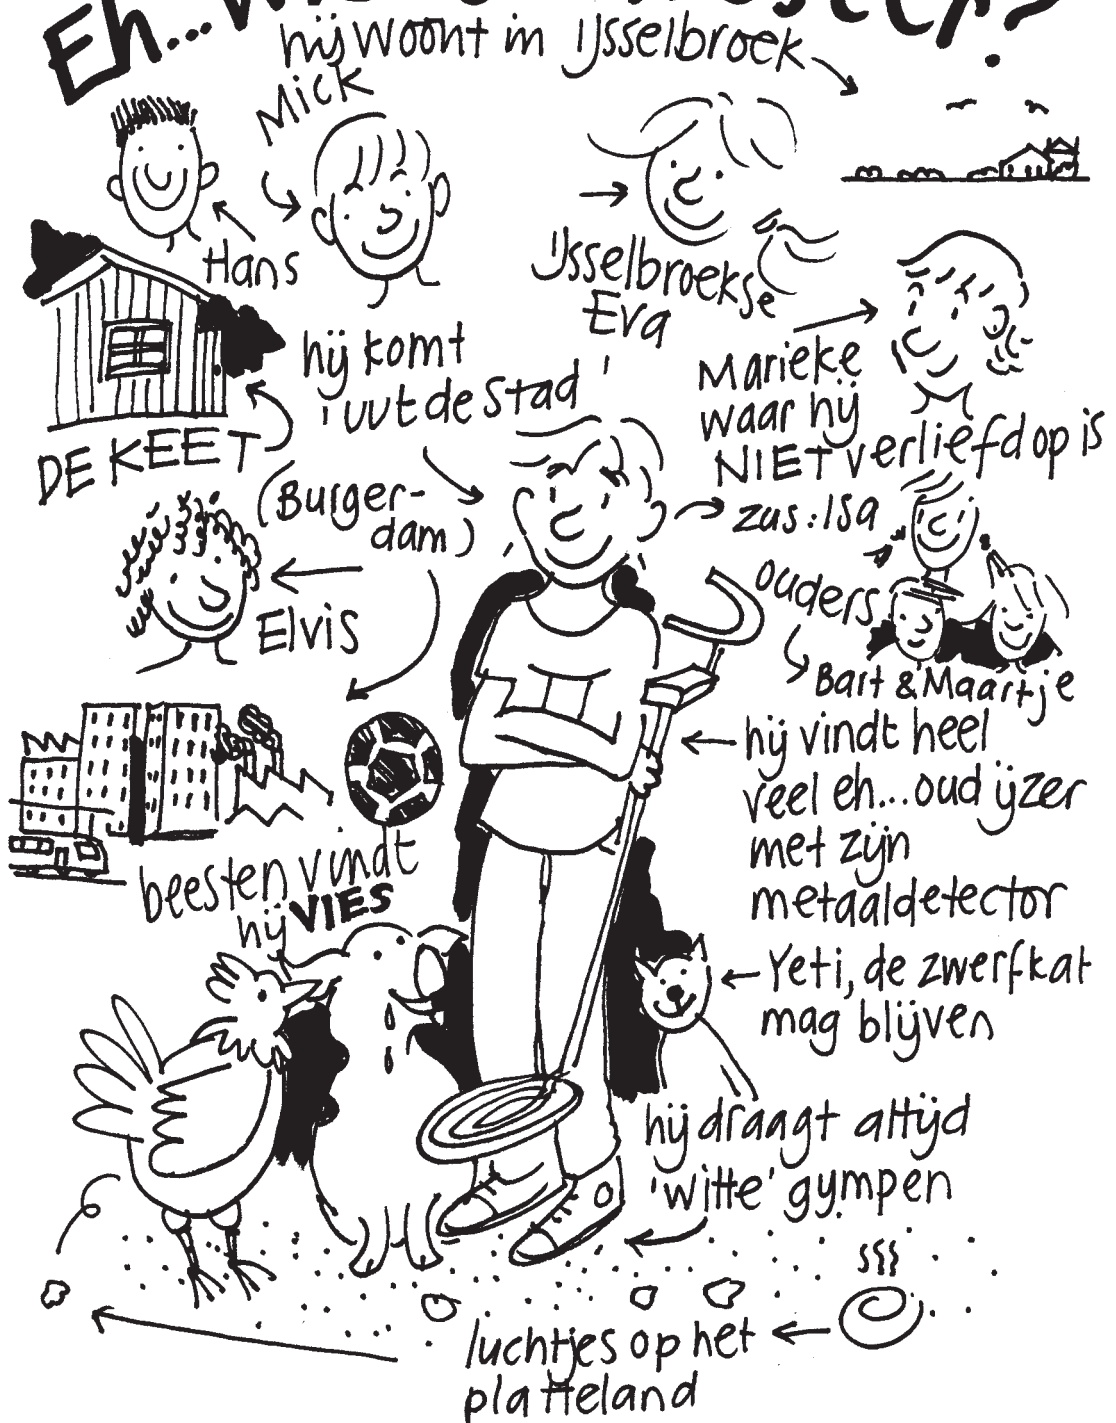 Eh...
hij woont in IJsselbroek
Mick
Hans
IJsselbroekse
Eva
hij komt
'uut de Stad'
(Burger-
dam)
DE KEET
Marieke
waar hij
NIET verliefd op is
zus: Isa
ouders
Bart & Maartje
Elvis
hij vindt heel
veel eh...oud ijzer
met zijn
metaaldetector
beesten vindt
hij VIES
Yeti, de zwerfkat
mag blijven
hij draagt altijd
'witte' gympen
luchtjes op het
platteland